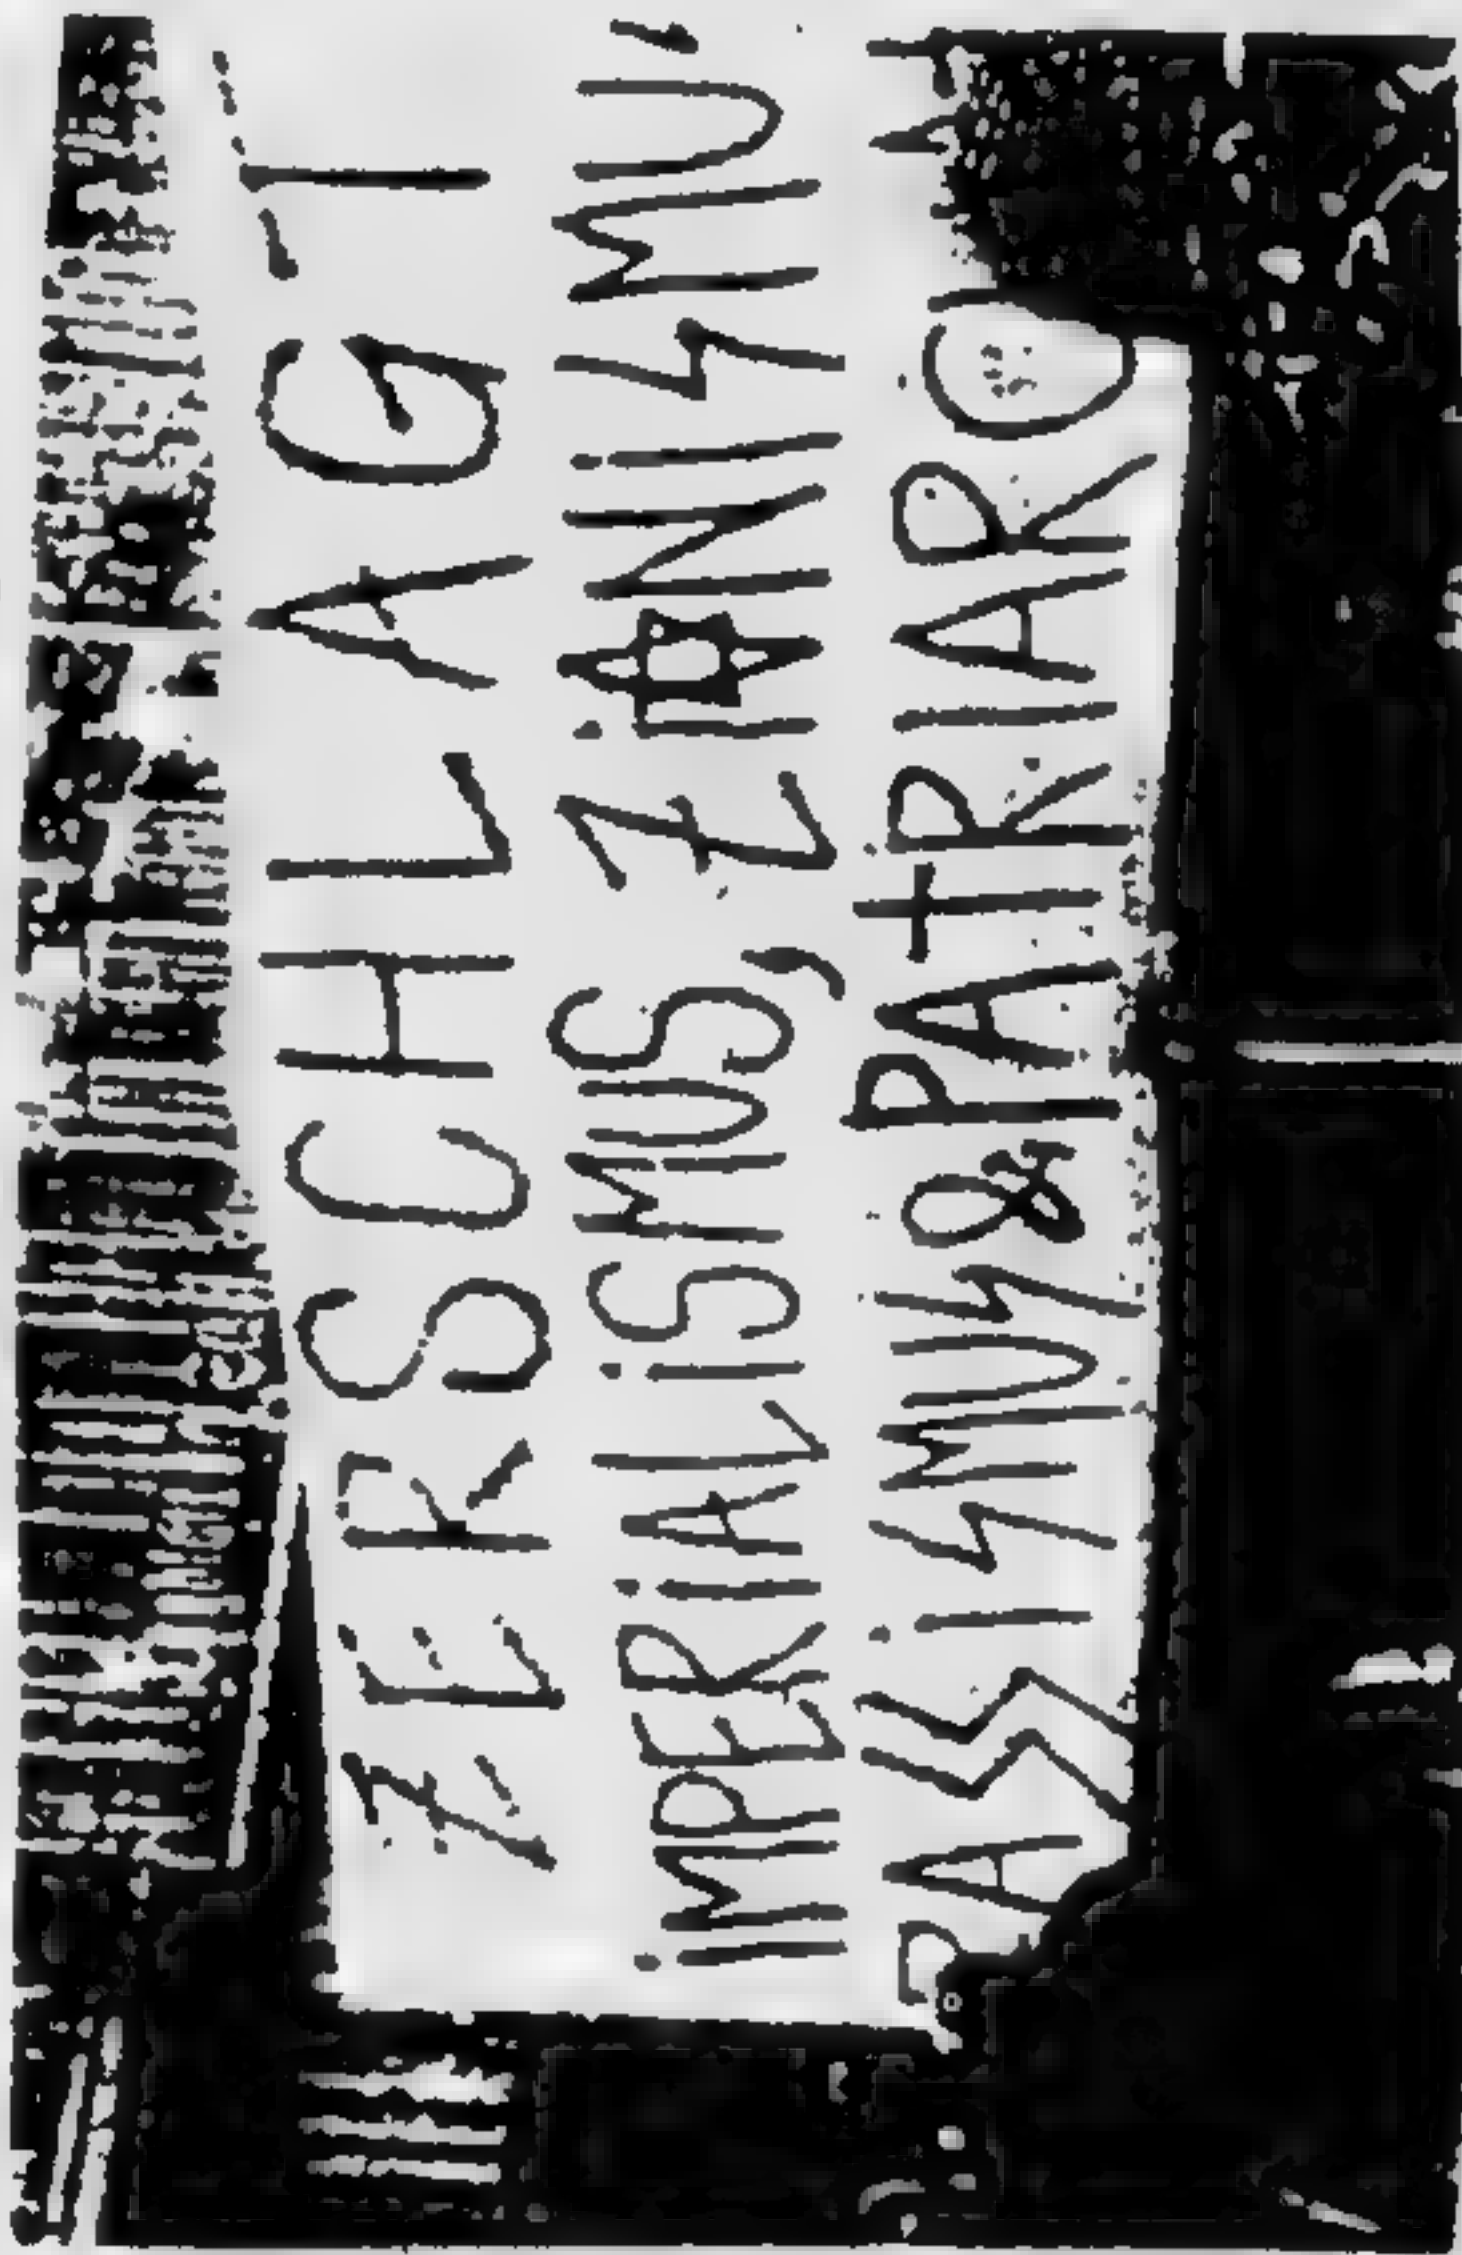 ZERSCHLAGT
iMPERiALiSMUS, Zi✡NiSMU
RASSiSMUS & PATRIARC